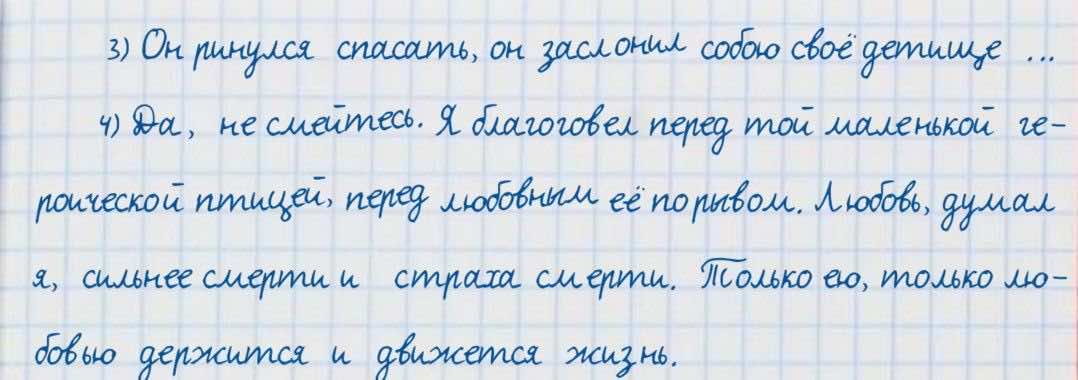 3) Он ринулся спасать, он заслонил собою своё детище ...
4) Да, не смейтесь. Я благоговел перед той маленькой ге-
роической птицей, перед любовным её порывом. Любовь, думал
я, сильнее смерти и страха смерти. Только ею, только лю-
бовью держится и движется жизнь.